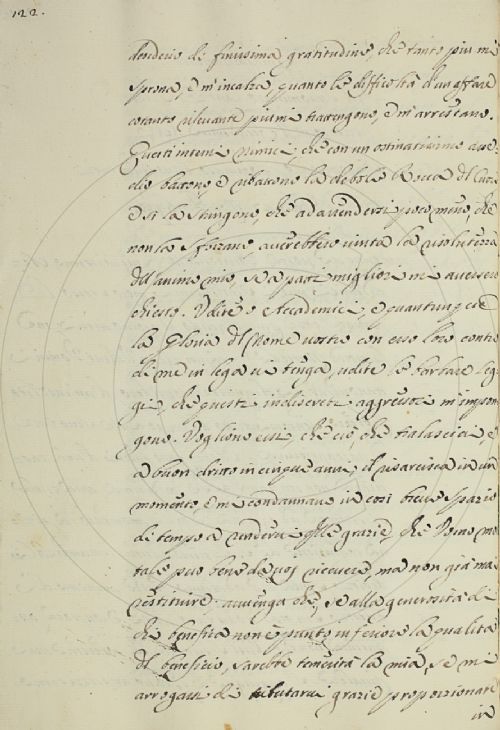 122.
denderio di finissima gratitudine, che tanto piu mi
sprona, e m'incalza, quanto le difficoltà d'un affare
cotanto rilevante piu mi trattengono, e m'arrestano.
Questi interni nimici, che con un ostinatissimo asse-
dio battono, e ribattono la debole Rocca del Cuore
e si la stringono, che ad arrendersi poco meno, che
non la sforzano, averebbero vinta la risolutezza
dell'animo mio, se a patti migliori mi avessero
chiesto. Udite o Accademici, e quantunque
la Gloria del Nome vostro con esso loro contro
di me in lega vi tenga, udite le barbare leg-
gi, che questi indiscreti aggressori m'impon-
gono. Vogliono essi, che ciò, che tralasciai
a buon dritto in cinque anni, il risarcisca in un
momento, e mi condannano in così breve spazio
di tempo a rendervi quelle grazie, che Uomo mor
tale può bene da voi ricevere, ma non già mai
restituire. avvenga che, se alla generosità di
chi benefica non è punto inferiore la qualità
del beneficio, sarebbe temerità la mia, se mi
arrogassi di tributarvi grazie proporzionate
in